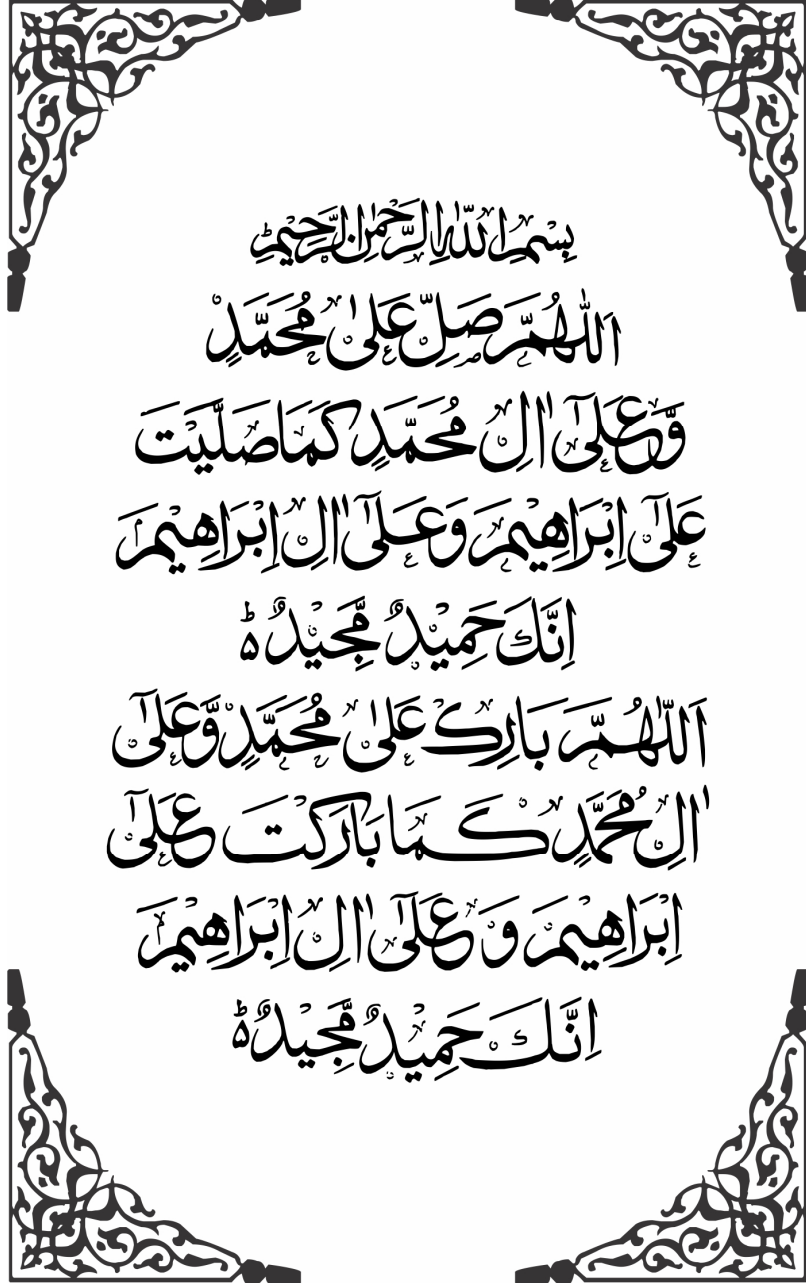 بِسْمِ اللّٰهِ الرَّحْمٰنِ الرَّحِيْمِ
اَللّٰهُمَّ صَلِّ عَلٰى مُحَمَّدٍ
وَّعَلٰٓى اٰلِ مُحَمَّدٍ كَمَا صَلَّيْتَ
عَلٰٓى اِبْرَاهِيْمَ وَعَلٰٓى اٰلِ اِبْرَاهِيْمَ
اِنَّكَ حَمِيْدٌ مَّجِيْدٌ ؕ۵
اَللّٰهُمَّ بَارِكْ عَلٰى مُحَمَّدٍ وَّعَلٰٓى
اٰلِ مُحَمَّدٍ كَمَا بَارَكْتَ عَلٰٓى
اِبْرَاهِيْمَ وَ عَلٰٓى اٰلِ اِبْرَاهِيْمَ
اِنَّكَ حَمِيْدٌ مَّجِيْدٌ ؕ۵